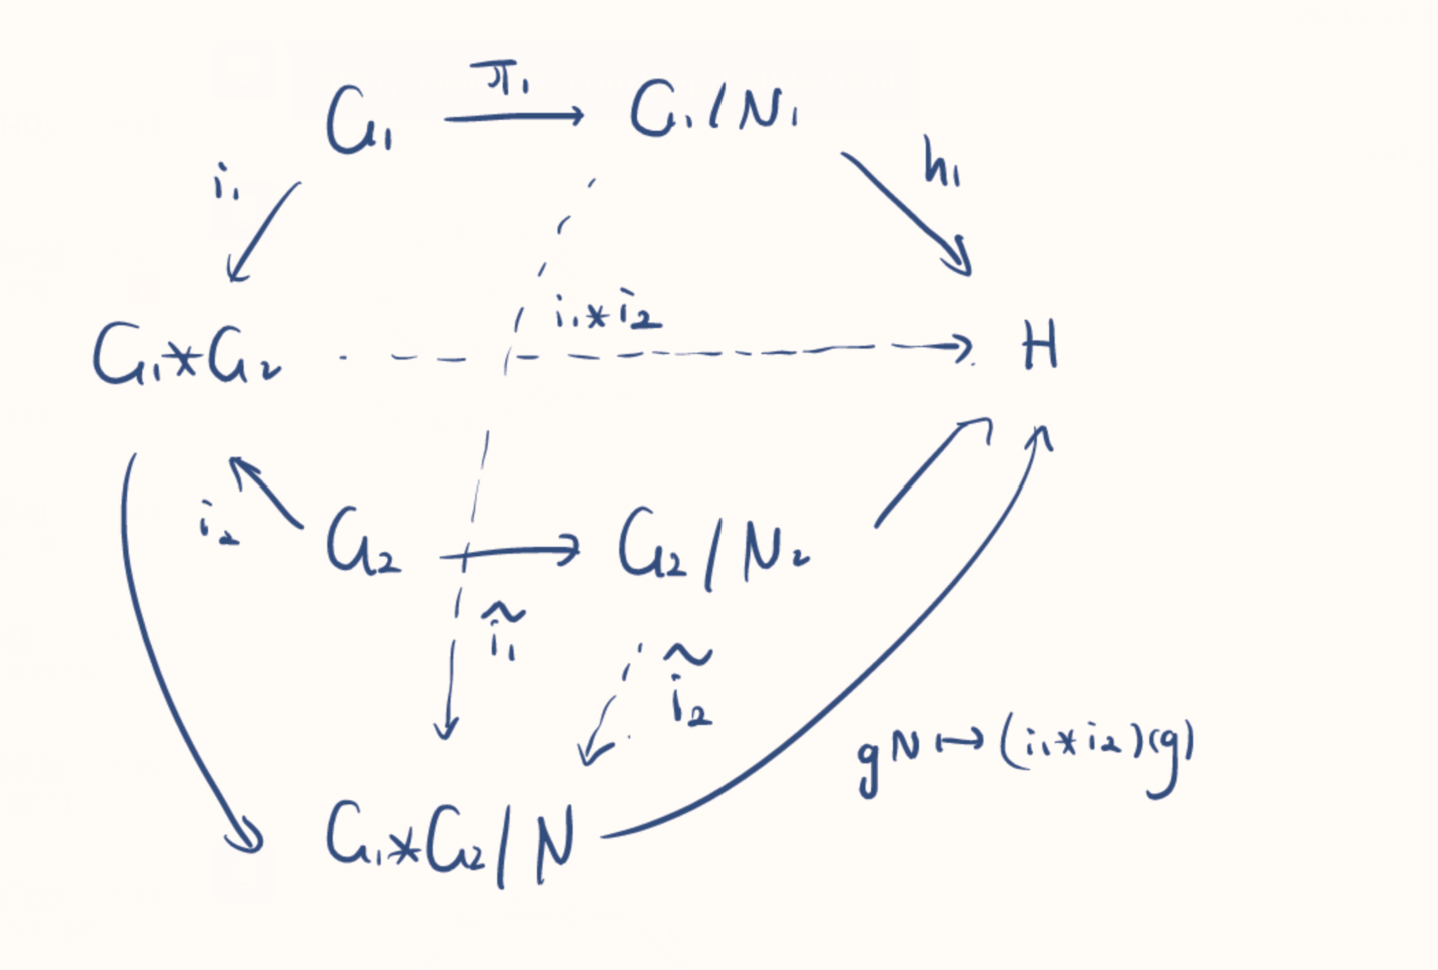 π₁
G₁ G₁/N₁
i₁ h₁
i₁*i₂
G₁*G₂ H
i₂ G₂ G₂/N₂
ĩ₁ ĩ₂
gN ↦ (i₁*i₂)(g)
G₁*G₂/N